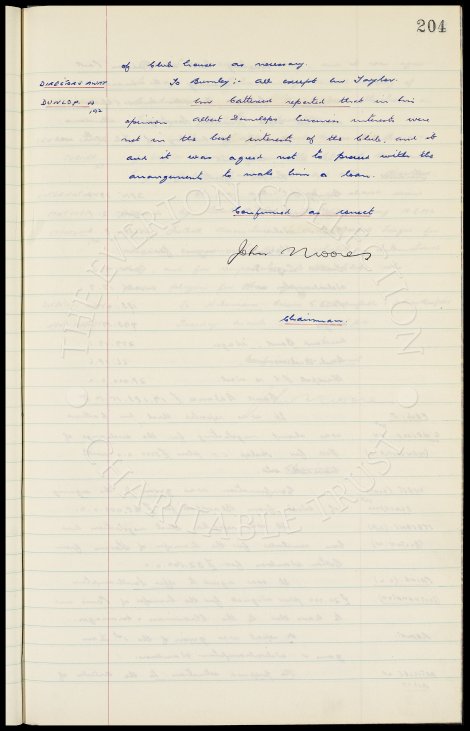 204
of Club houses as necessary.
DIRECTORS AWAY To Burnley:- All except Mr Taylor.
DUNLOP. A Mr Catterick reported that in his
192 opinion Albert Dunlops business interests were
not in the best interests of the Club, and it
and it was agreed not to proceed with the
arrangements to make him a loan.
Confirmed as correct
John Moores
Chairman.
THE EVERTON COLLECTION
CHARITABLE TRUST